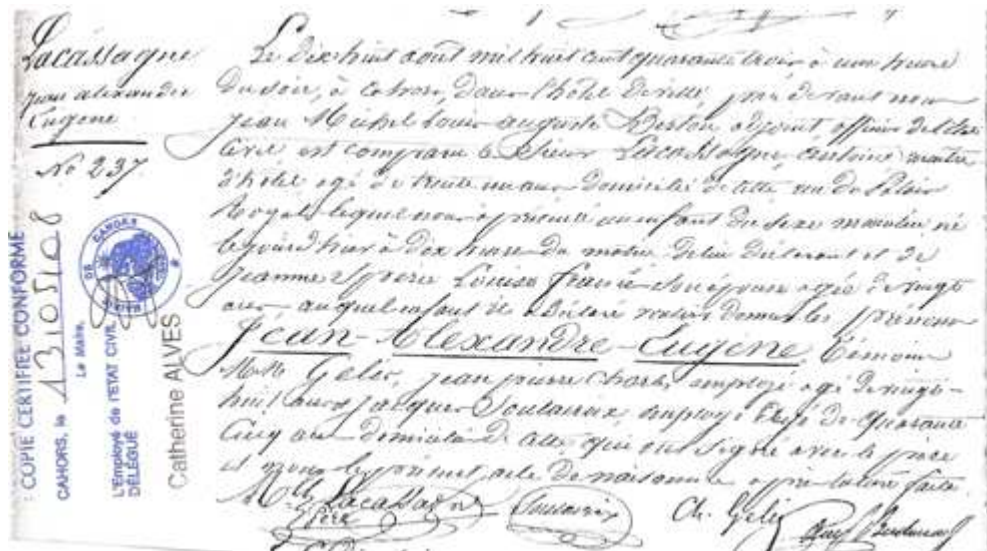 Lacassagne
jean alexandre
Eugène
No 237
COPIE CERTIFIÉE CONFORME
CAHORS, le 13/05/08
Le Maire,
L'Employé de l'ETAT CIVIL
DÉLÉGUÉ
Catherine ALVES
DE CAHORS
Le dix huit août mil huit cent quarante trois à une heure
du soir, à Cahors, dans l'hôtel de ville, par devant nous
jean Michel Louis auguste Berton, adjoint, officier de l'état
civil est comparu le Sieur Lacassagne, antoine maître
d'hôtel agé de trente un ans domicilié de cette rue du Palais
Royal, lequel nous a présenté un enfant du sexe masculin né
le jour d'hier à dix heures du matin de lui déclarant et de
jeanne Louise son épouse agée de vingt
ans, auquel enfant il a déclaré vouloir donner les prénoms
Jean-Alexandre-Eugène. témoins
M.M. Gelis, jean pierre Charles employé agé de vingt-
huit ans & jacques Soulacroix employé agé de quarante
cinq ans domiciliés de cette, qui ont signé avec le père
et nous le présent acte de naissance après lecture faite.
Lacassagne Soulacroix Ch. Gelis
Père